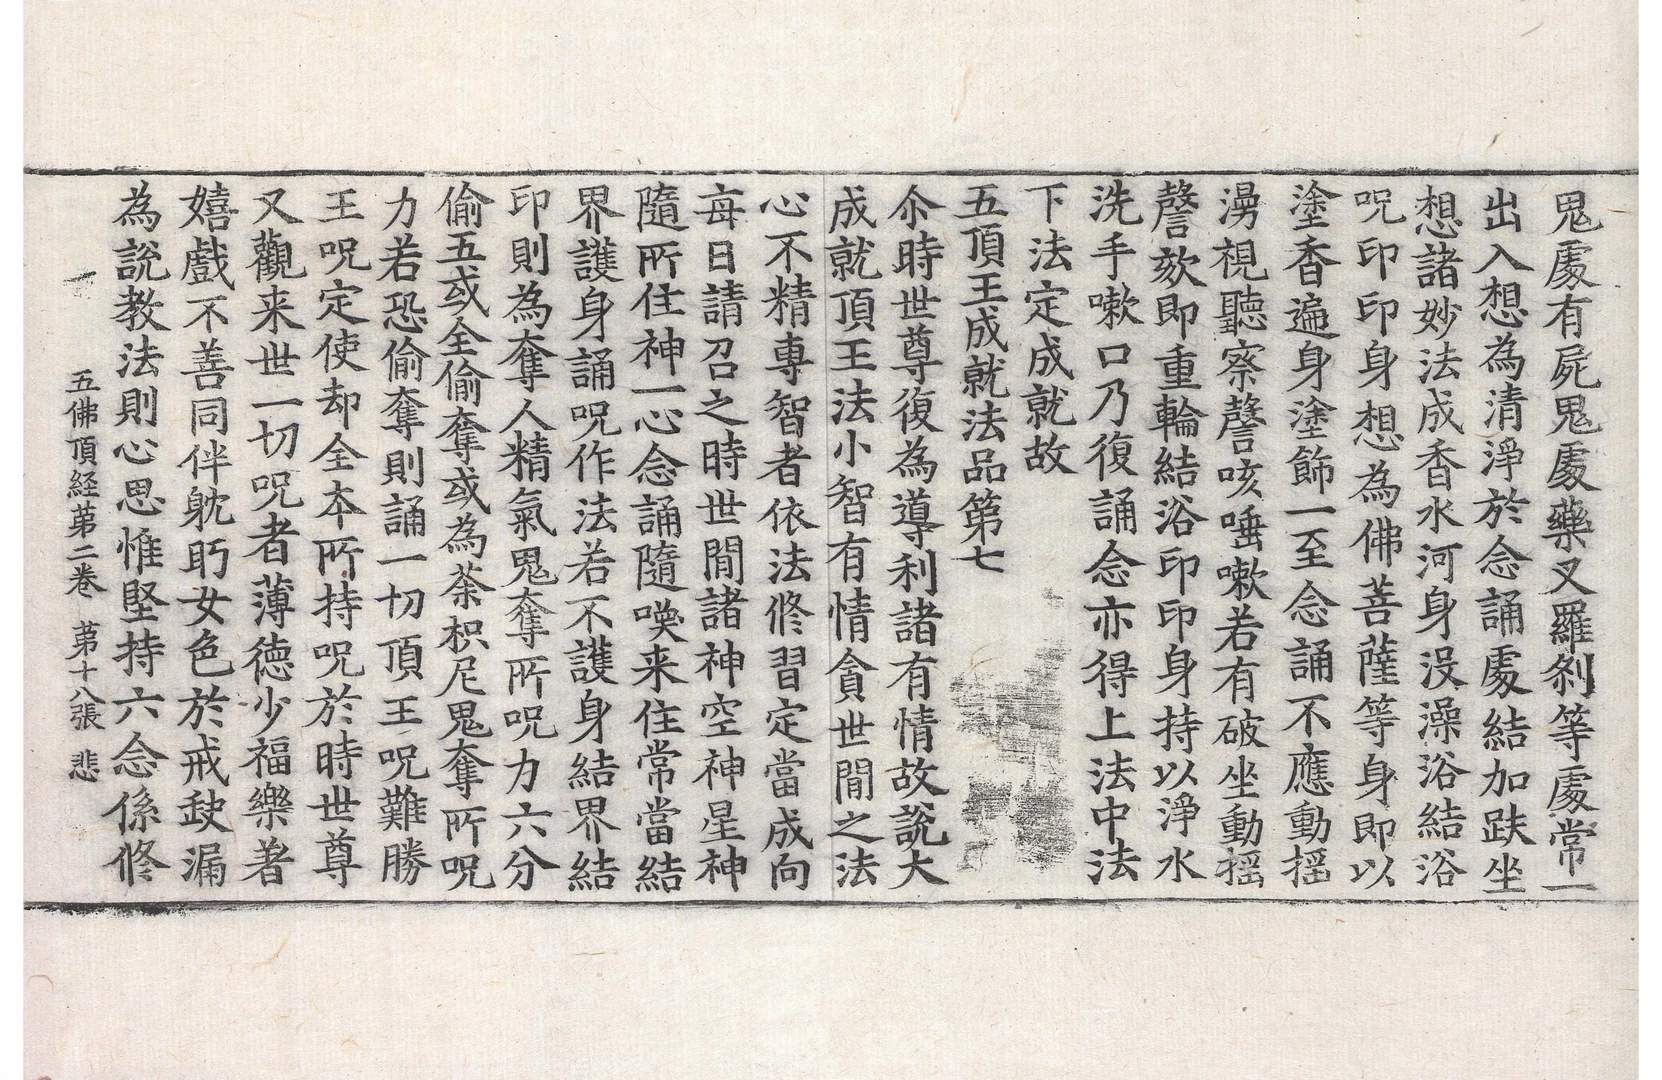 鬼處有屍鬼處藥叉羅剎等處常一
出入想為清淨於念誦處結加趺坐
想諸妙法成香水河身沒澡浴結浴
呪印印身想為佛菩薩等身即以
塗香遍身塗飾一至念誦不應動搖
湯視聽察謦咳唾嗽若有破坐動搖
謦欬即重輪結浴印印身持以淨水
洗手嗽口乃復誦念亦得上法中法
下法定成就故
五頂王成就法品第七
尒時世尊復為導利諸有情故說大
成就頂王法小智有情貪世間之法
心不精專智者依法修習定當成向
每日請召之時世間諸神空神星神
隨所住神一心念誦隨喚来住常當結
界護身誦呪作法若不護身結界結
印則為奪人精氣鬼奪所呪力六分
偷五或全偷奪或為荼枳尼鬼奪所呪
力若恐偷奪則誦一切頂王呪難勝
王呪定使却全本所持呪於時世尊
又觀来世一切呪者薄德少福樂著
嬉戲不善同伴躭眄女色於戒缺漏
為說教法則心思惟堅持六念係修
五佛頂経苐二卷 苐十八張 悲